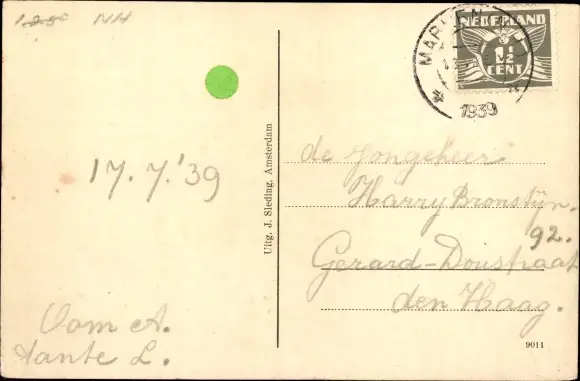 1250 NH
MARKEN
1939
NEDERLAND
1½
CENT
17.7.'39
Uitg. J. Sleding, Amsterdam
de Jongeheer
Harry Bronstijn.
92.
Gerard-Doustraat
den Haag.
Oom A.
tante L.
9011